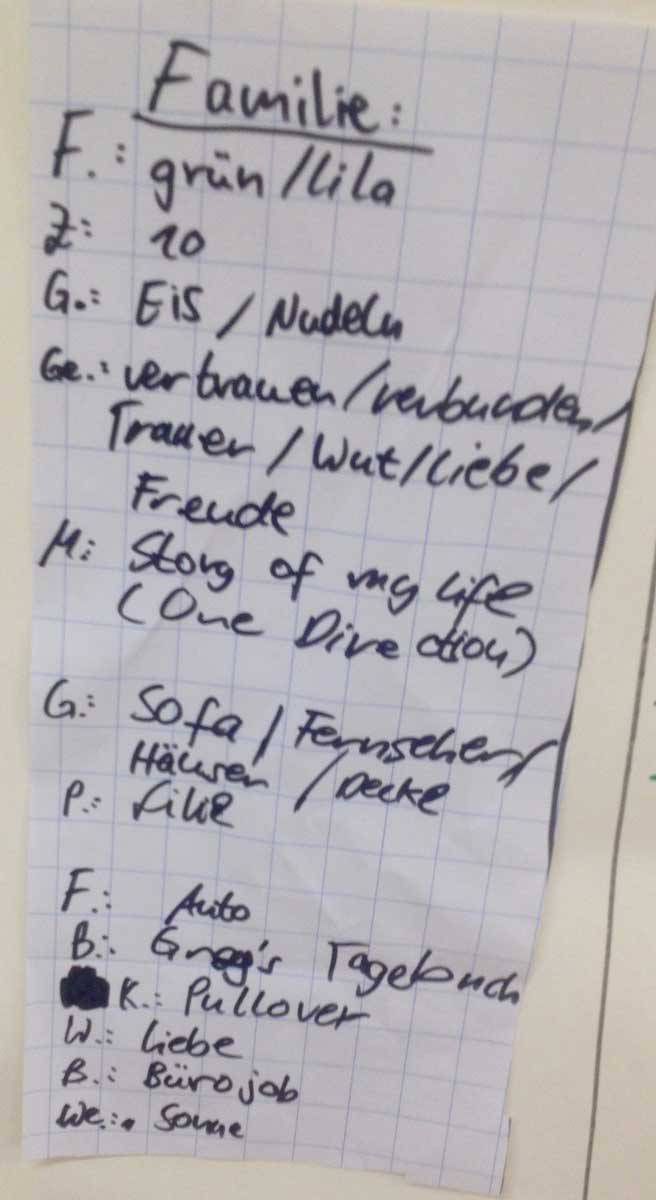 Familie:
F.: grün/lila
Z: 10
G.: Eis / Nudeln
Ge.: vertrauen/verbunden/
Trauer/Wut/Liebe/
Freude
M: Story of my life
(One Direction)
G.: Sofa/Fernseher/
Häuser / Decke
P.: Lilie
F.: Auto
B.: Greg's Tagebuch
K.: Pullover
W.: Liebe
B.: Bürojob
We.: Sonne